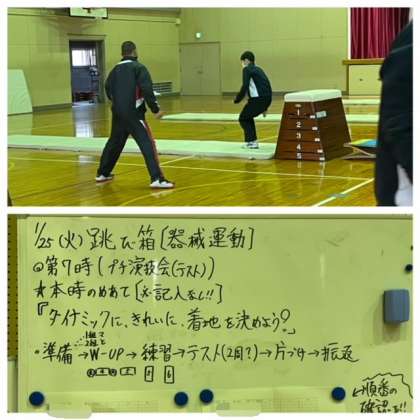 1
2
3
4
5
1/25(火)跳び箱[器械運動]
◎第7時(プチ演技会(テスト))
★本時のめあて[※記入なし!!]
『ダイナミックに、きれいに、着地を決めよう?』
・準備→W-UP→練習→テスト(2回?)→片づけ→振返
順番の
確認を!!